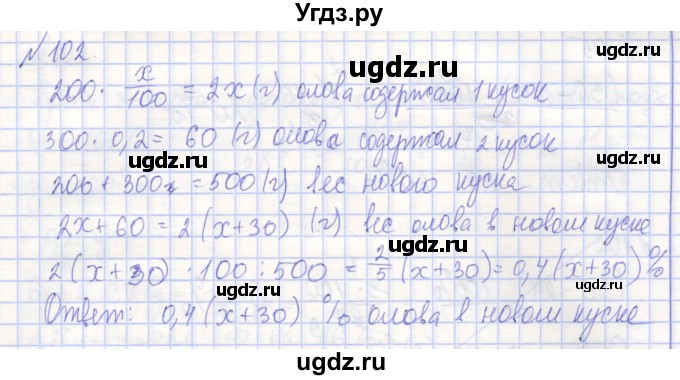 Угдз.ру
№ 102.
ugdz.ru
200 · x/100 = 2x (г) олова содержал 1 кусок
ugdz.ru
300 · 0,2 = 60 (г) олова содержал 2 кусок
ugdz.ru
200 + 300 = 500 (г) вес нового куска
ugdz.ru
2x + 60 = 2 (x + 30) (г) вес олова в новом куске
ugdz.ru
2 (x + 30) · 100 : 500 = 2/5 (x + 30) = 0,4 (x + 30) %
ugdz.ru ugdz.ru
Ответ: 0,4 (x + 30) % олова в новом куске
ugdz.ru